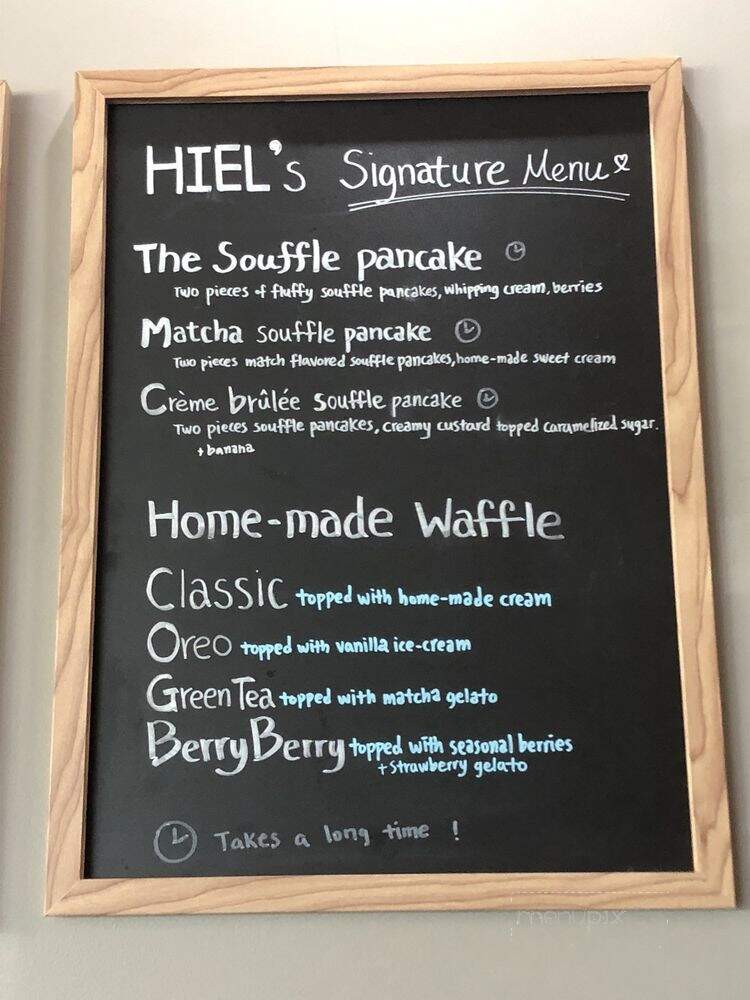 HIEL's Signature Menu
The Souffle pancake
Two pieces of fluffy souffle pancakes, whipping cream, berries
Matcha souffle pancake
Two pieces match flavored souffle pancakes, home-made sweet cream
Crème brûlée souffle pancake
Two pieces souffle pancakes, creamy custard topped caramelized sugar.
+ banana
Home-made Waffle
Classic topped with home-made cream
Oreo topped with vanilla ice-cream
Green Tea topped with matcha gelato
Berry Berry topped with seasonal berries
+ strawberry gelato
Takes a long time !
menupix